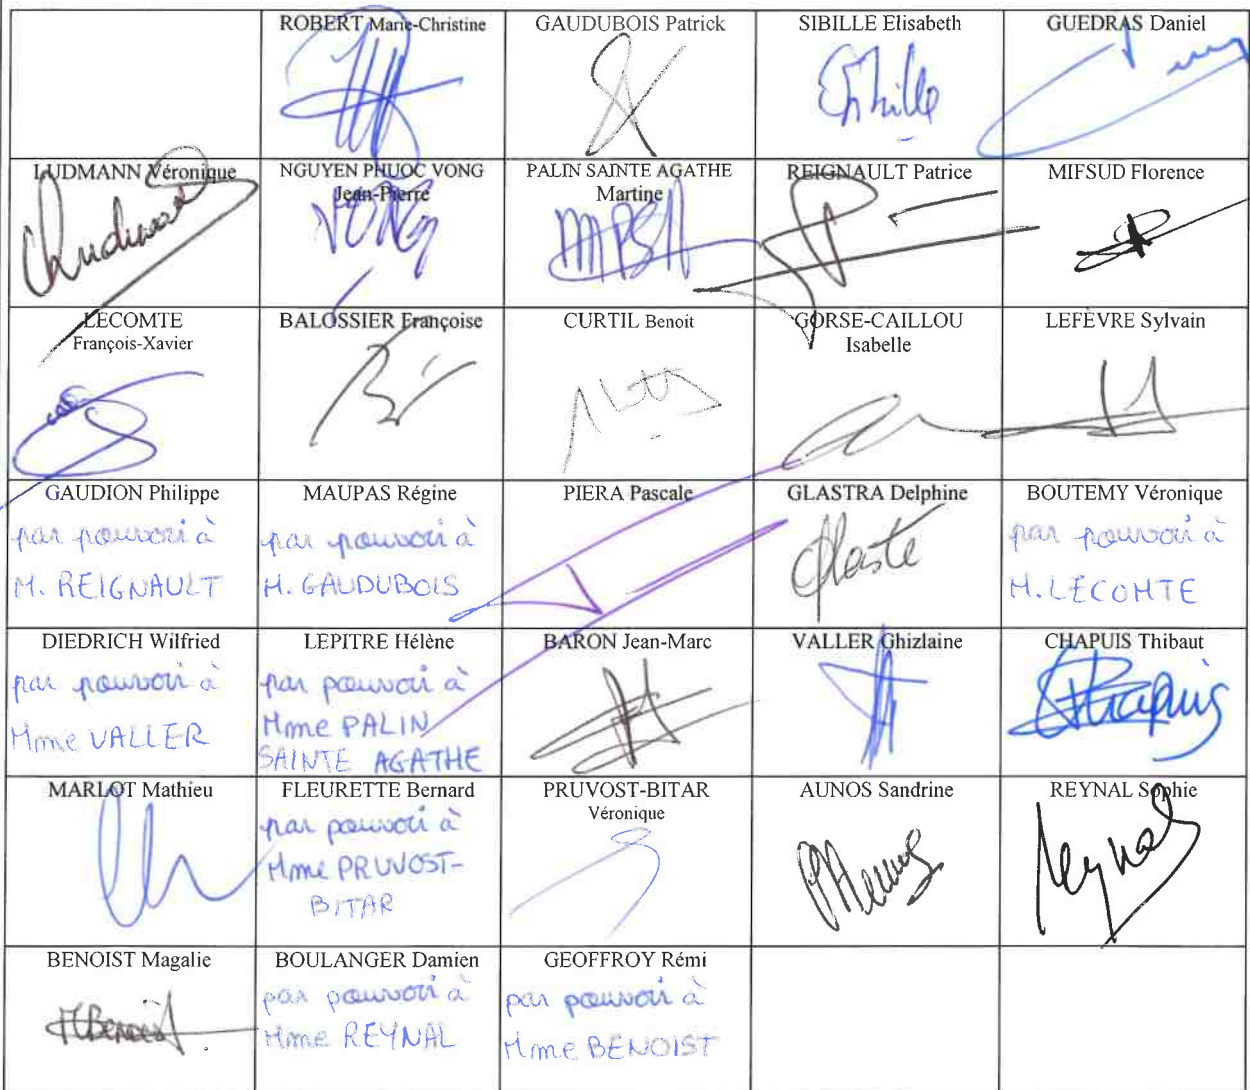 ROBERT Marie-Christine
GAUDUBOIS Patrick
SIBILLE Elisabeth
GUEDRAS Daniel
LUDMANN Véronique
NGUYEN PHUOC VONG
Jean-Pierre
VONG
PALIN SAINTE AGATHE
Martine
MPSA
REIGNAULT Patrice
MIFSUD Florence
LECOMTE
François-Xavier
BALOSSIER Françoise
CURTIL Benoit
GORSE-CAILLOU
Isabelle
LEFÈVRE Sylvain
GAUDION Philippe
par pouvoir à
M. REIGNAULT
MAUPAS Régine
par pouvoir à
M. GAUDUBOIS
PIERA Pascale
GLASTRA Delphine
BOUTEMY Véronique
par pouvoir à
M. LECOMTE
DIEDRICH Wilfried
par pouvoir à
Mme VALLER
LEPITRE Hélène
par pouvoir à
Mme PALIN
SAINTE AGATHE
BARON Jean-Marc
VALLER Ghizlaine
CHAPUIS Thibaut
Chapuis
MARLOT Mathieu
FLEURETTE Bernard
par pouvoir à
Mme PRUVOST-
BITAR
PRUVOST-BITAR
Véronique
AUNOS Sandrine
REYNAL Sophie
Reynal
BENOIST Magalie
MBenoist
BOULANGER Damien
par pouvoir à
Mme REYNAL
GEOFFROY Rémi
par pouvoir à
Mme BENOIST